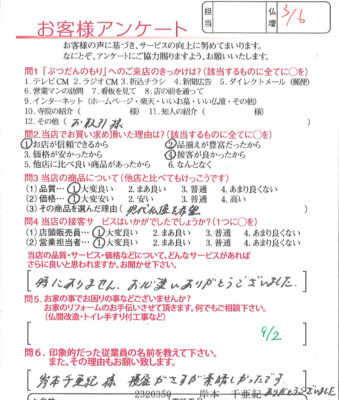 お客様アンケート
担当
仏壇
3/6
お客様の声に基づき、サービスの向上に努めてまいります。
なにとぞ、アンケートにご協力賜りますよう、お願いいたします。
問1 「ぶつだんのもり」へのご来店のきっかけは?(該当するもの全てに○を)
1. テレビCM 2. ラジオCM 3. 折込チラシ 4. 新聞広告 5. ダイレクトメール(郵便)
6. 営業マンの訪問 7. 看板を見て 8. 店の前を通って
9. インターネット(ホームページ・楽天・いいお墓・いい仏壇・その他)
10. 寺院の紹介( 様) 11. 知人の紹介( 様)
12. その他( お取引様 )
問2. 当店でお買い求め頂いた理由は?(該当するもの全てに○を)
①お店が信頼できるから ②品揃えが豊富だったから
3. 価格が安かったから ④接客が良かったから
5. 他店に比べ良い商品があったから 6. なんとなく
問3 当店の商品について(他店と比べてもけっこうです)
(1)品質… ①大変良い 2. まあ良い 3. 普通 4. あまり良くない
(2)価格… ①大変安い 2. 安い 3. 普通 4. 高い
(3)その商品を選んだ理由( 現代仏壇を希望
問4 当店の接客サービスはいかがでしたでしょうか?(1つに○を)
(1)店頭販売員… ①大変良い 2. まあ良い 3. 普通 4. あまり良くない
(2)営業担当者… ①大変良い 2. まあ良い 3. 普通 4. あまり良くない
当店の品質・サービス・価格などについて、どんなサービスがあれば
さらに良いと思われますか。お聞かせ下さい。
特にありません。お心遣いありがとうございました。
問5. お家の事でお困りの事などございませんか?
お家のリフォームのお手伝いさせて頂きます。何でもご相談下さい。
(仏間改造・トイレ手すり付工事など)
9/2
問6. 印象的だった従業員の名前を教えて下さい。
また、その理由もお願い致します。
岸本千亜紀様 機会がさすが素晴しかったです
2320350 岸本 千亜紀 ありがとうございました